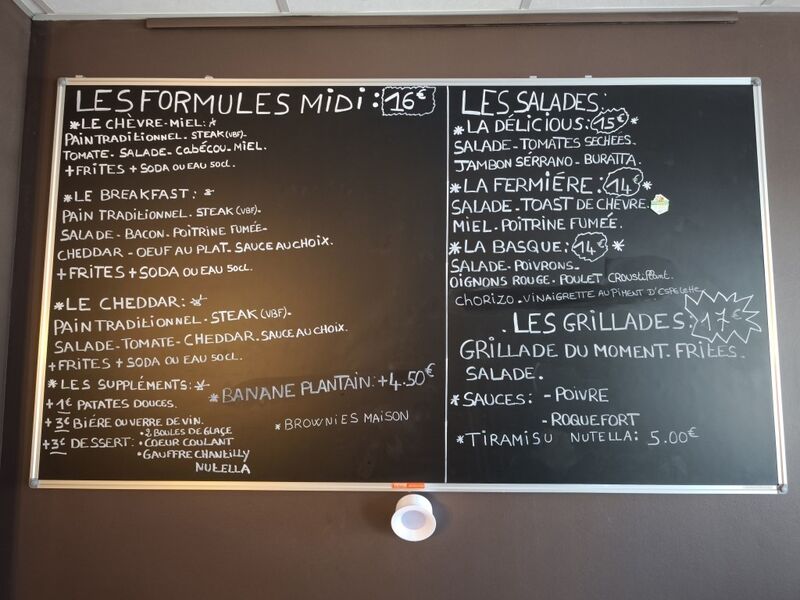 LES FORMULES MIDI: 16€
*LE CHÈVRE-MIEL: *
PAIN TRADITIONNEL - STEAK (VBF).
TOMATE - SALADE - CABÉCOU - MIEL.
+ FRITES + SODA OU EAU 50CL.
*LE BREAKFAST: *
PAIN TRADITIONNEL. STEAK (VBF).
SALADE - BACON. POITRINE FUMÉE -
CHEDDAR - OEUF AU PLAT. SAUCE AU CHOIX.
+ FRITES + SODA OU EAU 50CL.
*LE CHEDDAR: *
PAIN TRADITIONNEL - STEAK (VBF).
SALADE-TOMATE-CHEDDAR. SAUCE AU CHOIX.
+ FRITES + SODA OU EAU 50CL.
*LES SUPPLÉMENTS: *
*BANANE PLANTAIN: +4.50€
+ 1€ PATATES DOUCES.
+ 3€ BIÉRE OU VERRE DE VIN.
*BROWNIES MAISON
+ 3€ DESSERT:
• 2 BOULES DE GLAÇE
• COEUR COULANT
• GAUFFRE CHANTILLY
NUTELLA
LES SALADES:
*LA DÉLICIOUS: 15€ *
SALADE - TOMATES SÉCHÉES -
JAMBON SÉRRANO - BURATTA.
*LA FERMIÉRE: 14€ *
SALADE - TOAST DE CHÈVRE.
MIEL - POITRINE FUMÉE.
*LA BASQUE: 14€ *
SALADE - POIVRONS -
OIGNONS ROUGE - POULET CROUSTILLANT.
CHORIZO - VINAIGRETTE AU PIMENT D'ESPELETTE
. LES GRILLADES: 17€
GRILLADE DU MOMENT. FRITES.
SALADE.
*SAUCES: - POIVRE
- ROQUEFORT
*TIRAMISU NUTELLA: 5.00€